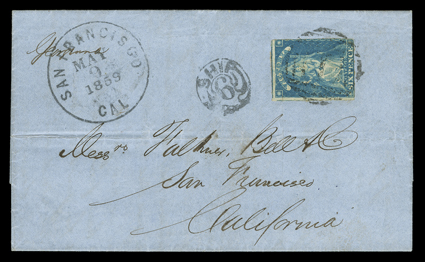 SAN FRANCISCO
MAY
1859
CAL
SHIP
6
Messrs Falkner, Bell & Co
San Francisco
California